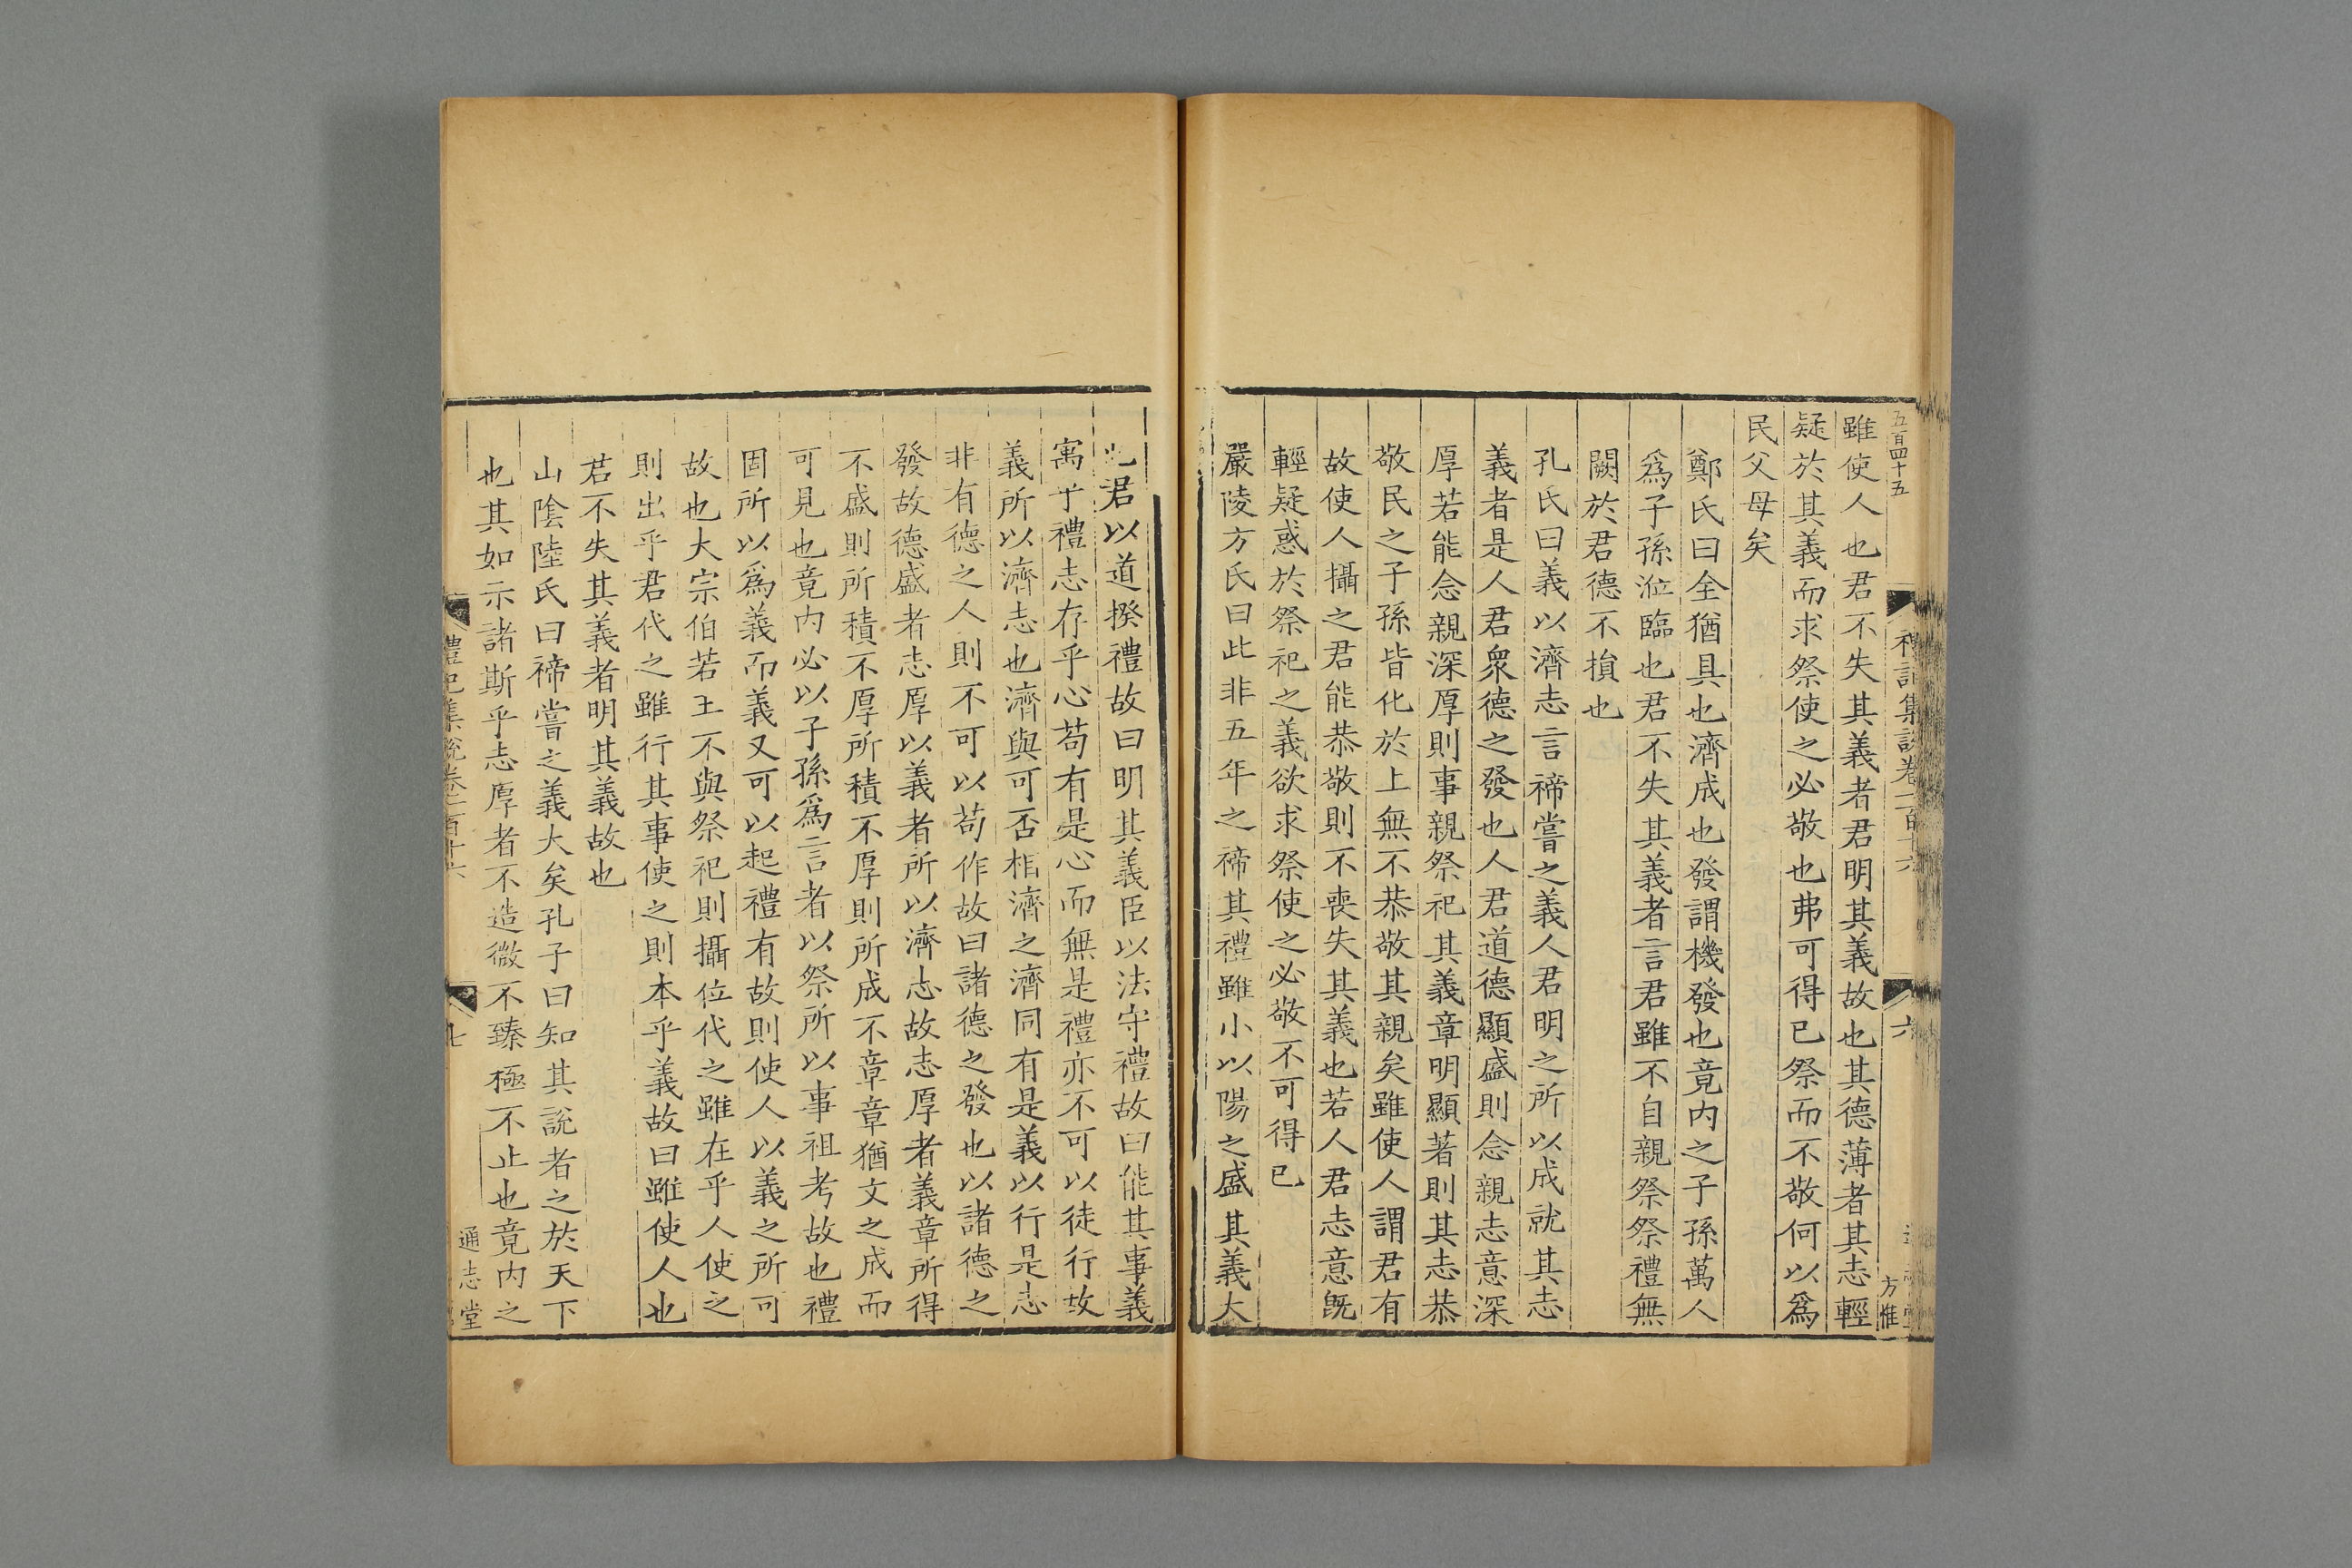 五百四十五
雖使人也君不失其義者君明其義故也其德薄者其志輕
疑於其義而求祭使之必敬也弗可得已祭而不敬何以爲
民父母矣
鄭氏曰全猶具也濟成也發謂機發也竟内之子孫萬人
爲子孫涖臨也君不失其義者言君雖不自親祭祭禮無
闕於君德不損也
孔氏曰義以濟志言禘嘗之義人君明之所以成就其志
義者是人君衆德之發也人君道德顯盛則念親志意深
厚若能念親深厚則事親祭祀其義章明顯著則其志恭
敬民之子孫皆化於上無不恭敬其親矣雖使人謂君有
故使人攝之君能恭敬則不喪失其義也若人君志意旣
輕疑惑於祭祀之義欲求祭使之必敬不可得已
嚴陵方氏曰此非五年之禘其禮雖小以陽之盛其義大
也君以道揆禮故曰明其義臣以法守禮故曰能其事義
寓乎禮志存乎心苟有是心而無是禮亦不可以徒行故
義所以濟志也濟與可否相濟之濟同有是義以行是志
非有德之人則不可以苟作故曰諸德之發也以諸德之
發故德盛者志厚以義者所以濟志故志厚者義章所得
不盛則所積不厚所積不厚則所成不章章猶文之成而
可見也竟内必以子孫爲言者以祭所以事祖考故也禮
固所以爲義而義又可以起禮有故則使人以義之所可
故也大宗伯若王不與祭祀則攝位代之雖在乎人使之
則出乎君代之雖行其事使之則本乎義故曰雖使人也
君不失其義者明其義故也
山陰陸氏曰禘嘗之義大矣孔子曰知其說者之於天下
也其如示諸斯乎志厚者不造微不臻極不止也竟内之
禮記集說卷一百十六
六
方惟
禮記集說卷一百十六
七
通志堂